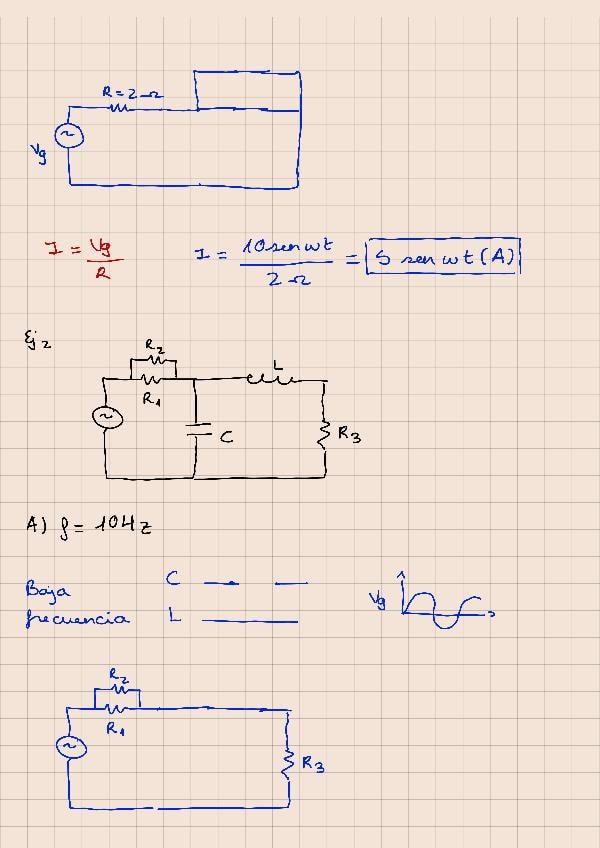 R = 2 Ω
Vg
I = Vg / R
I = 10 sen wt / 2 Ω = 5 sen wt (A)
Ej 2
R2
R1
L
C
R3
A) f = 10Hz
Baja
frecuencia
C
L
Vg
R2
R1
R3